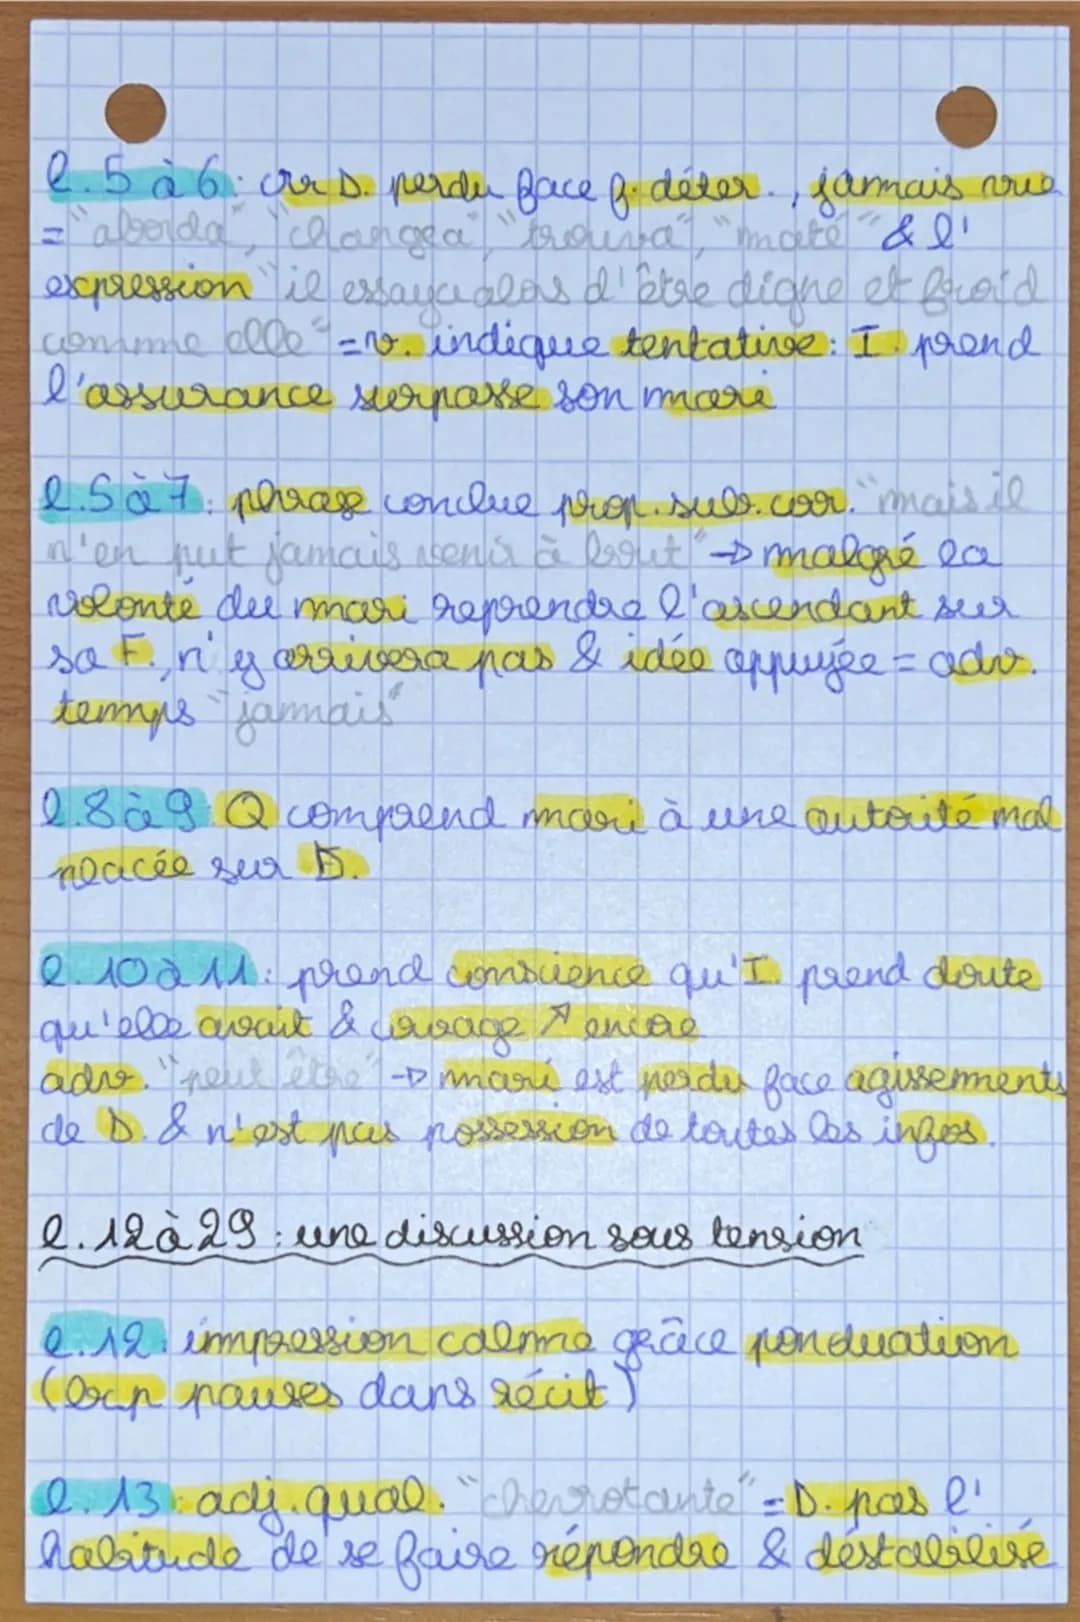 l.5 à 6: car D. perdu face f. déter., jamais vue
= "aborda", "changea" "trouva", "maté" & l'
expression "il essaya alors d'être digne et froid
comme elle" = v. indique tentative: I. prend
l'assurance surpasse son mari
l.5 à 7: phrase conclue prop. sub. coor. "mais il
n'en put jamais venir à bout" → malgré la
volonté du mari reprendre l'ascendant sur
sa F., n'y arrivera pas & idée appuyée = adv.
temps "jamais"
l.8 à 9: Q comprend mari à une autorité mal
placée sur D.
l.10 à 11: prend conscience qu'I. prend doute
qu'elle avait & courage ↗ encore
adv. "peut être" → mari est perdu face agissements
de D. & n'est pas possession de toutes les infos.
l.12 à 29: une discussion sous tension
l.12: impression calme grâce ponctuation
(bcp pauses dans récit)
l.13: adj. qual. "chevrotante" = D. pas l'
habitude de se faire répondre & déstabilisé